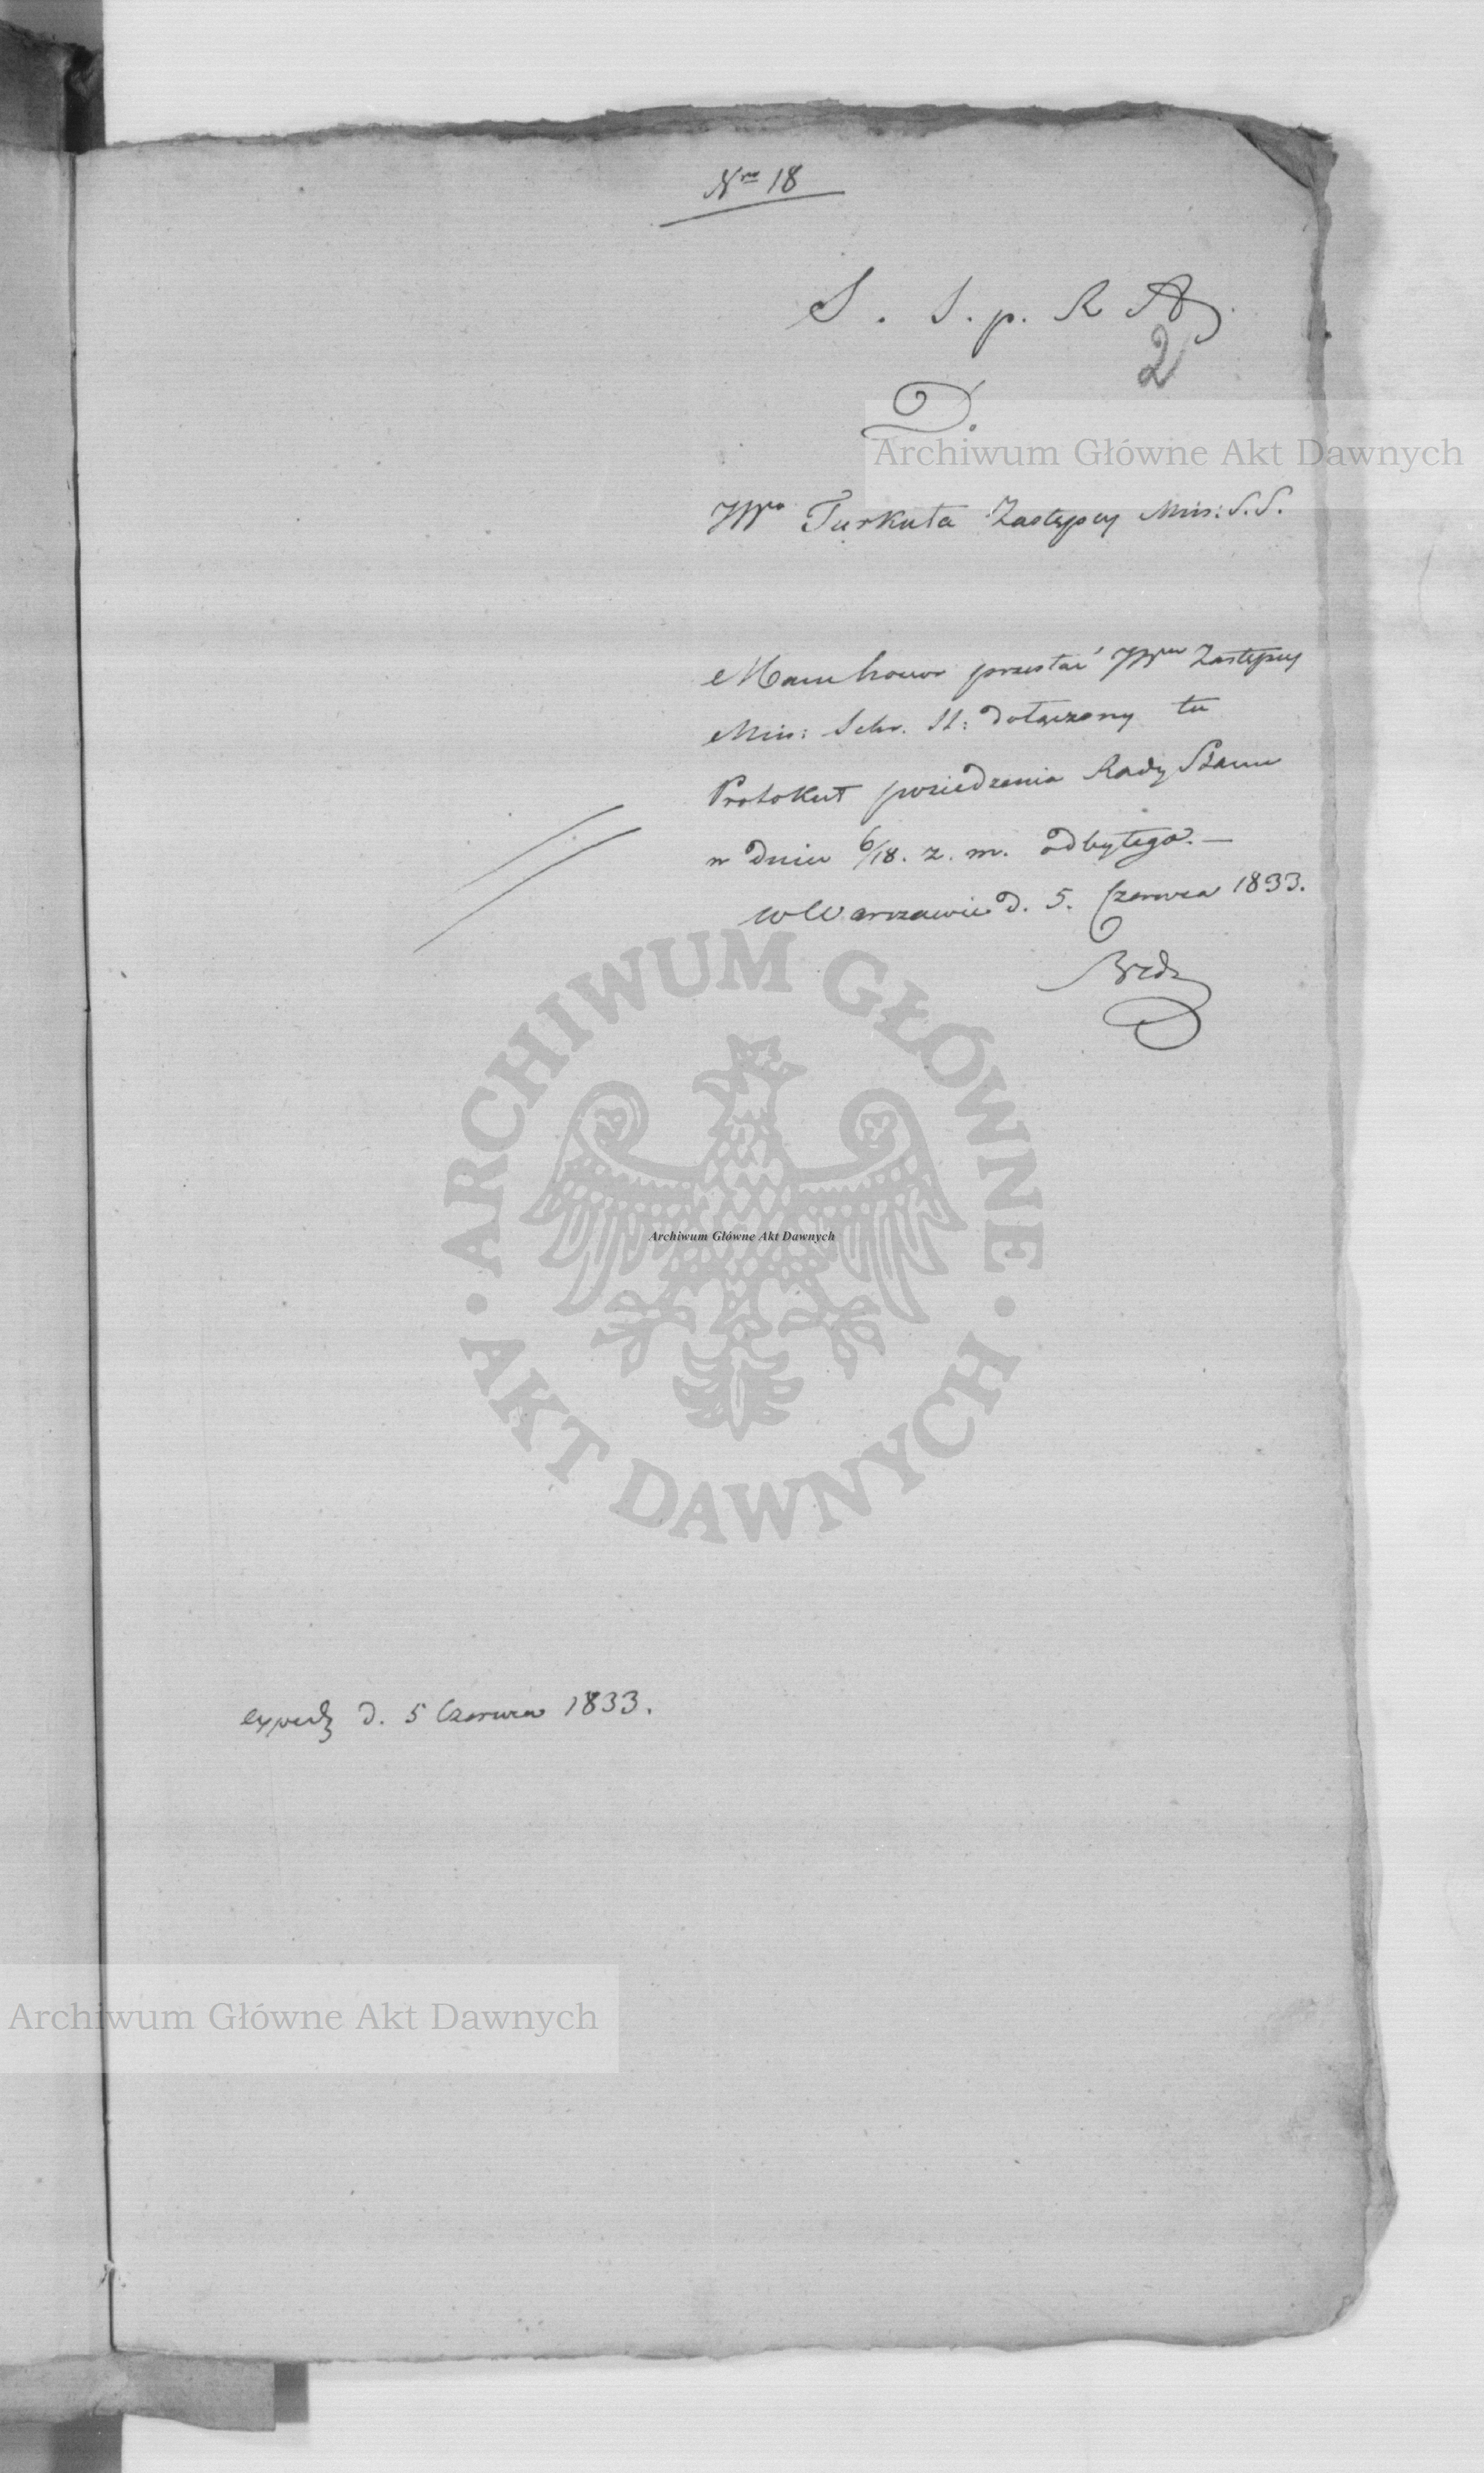 Nro 18
S. S. p. R A.
2
D.
Archiwum Główne Akt Dawnych
JWo Turkuła Zastępcy Min: S. S.
Mam honor przesłać JWmu Zastępcy
Min: Sekr. St: dołączony tu
Protokuł posiedzenia Rady Stanu
w dniu 6/18. z. m. odbytego. —
w Warszawie d. 5. Czerwca 1833.
ARCHIWUM GŁÓWNE
Archiwum Główne Akt Dawnych
AKT DAWNYCH
d. 5 Czerwca 1833.
Archiwum Główne Akt Dawnych